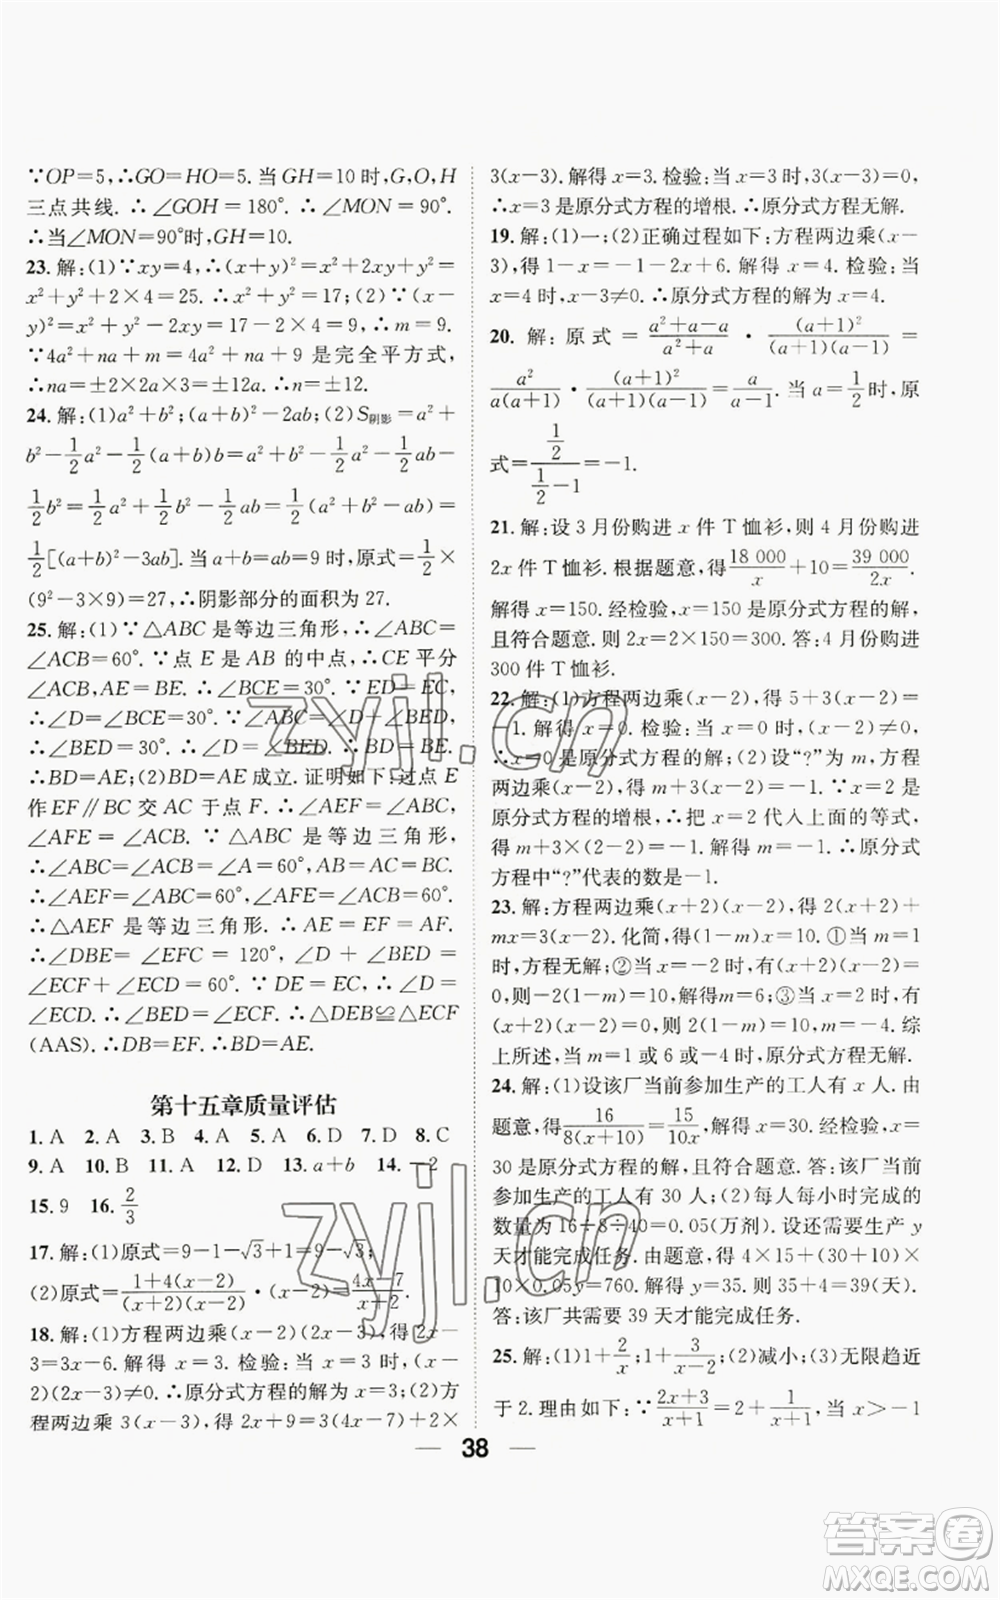 ∵OP=5,∴GO=HO=5.当GH=10时,G,O,H
三点共线.∴∠GOH=180°.∴∠MON=90°.
∴当∠MON=90°时,GH=10.
23.解:(1)∵xy=4,∴(x+y)²=x²+2xy+y²=
x²+y²+2×4=25.∴x²+y²=17;(2)∵(x-
y)²=x²+y²-2xy=17-2×4=9.∴m=9.
∵4a²+na+m=4a²+na+9是完全平方式,
∴na=±2×2a×3=±12a.∴n=±12.
24.解:(1)a²+b²;(a+b)²-2ab;(2)S阴影=a²+
b²-1/2a²-1/2(a+b)b=a²+b²-1/2a²-1/2ab-
1/2b²=1/2a²+1/2b²-1/2ab=1/2(a²+b²-ab)=
1/2[(a+b)²-3ab].当a+b=ab=9时,原式=1/2×
(9²-3×9)=27,∴阴影部分的面积为27.
25.解:(1)∵△ABC是等边三角形,∴∠ABC=
∠ACB=60°.∵点E是AB的中点,∴CE平分
∠ACB,AE=BE.∴∠BCE=30°.∵ED=EC,
∴∠D=∠BCE=30°.∵∠ABC=∠D+∠BED,
∴∠BED=30°.∴∠D=∠BED.∴BD=BE.
∴BD=AE;(2)BD=AE成立.证明如下:过点E
作EF∥BC交AC于点F.∴∠AEF=∠ABC,
∠AFE=∠ACB.∵△ABC是等边三角形,
∴∠ABC=∠ACB=∠A=60°,AB=AC=BC.
∴∠AEF=∠ABC=60°,∠AFE=∠ACB=60°.
∴△AEF是等边三角形.∴AE=EF=AF.
∴∠DBE=∠EFC=120°,∠D+∠BED=
∠ECF+∠ECD=60°.∵DE=EC,∴∠D=
∠ECD.∴∠BED=∠ECF.∴△DEB≌△ECF
(AAS).∴DB=EF.∴BD=AE.
第十五章质量评估
1.A 2.A 3.B 4.A 5.A 6.D 7.D 8.C
9.A 10.B 11.A 12.D 13.a+b 14.-2
15.9 16.2/3
17.解:(1)原式=9-1-√3+1=9-√3;
(2)原式=1+4(x-2)/(x+2)(x-2)·(x-2)=4x-7/x+2.
18.解:(1)方程两边乘(x-2)(x-3),得2x-
3=3x-6.解得x=3.检验:当x=3时,(x-
2)(2x-3)≠0.∴原分式方程的解为x=3;(2)方
程两边乘3(x-3),得2x+9=3(4x-7)+2×
3(x-3).解得x=3.检验:当x=3时,3(x-3)=0,
∴x=3是原分式方程的增根.∴原分式方程无解.
19.解:(1)一;(2)正确过程如下:方程两边乘(x-
3),得1-x=-1-2x+6.解得x=4.检验:当
x=4时,x-3≠0.∴原分式方程的解为x=4.
20.解:原式=a²+a-a/a²+a·(a+1)²/(a+1)(a-1)=
a²/a(a+1)·(a+1)²/(a+1)(a-1)=a/a-1.当a=1/2时,原
式=1/2/1/2-1=-1.
21.解:设3月份购进x件T恤衫,则4月份购进
2x件T恤衫.根据题意,得18 000/x+10=39 000/2x.
解得x=150.经检验,x=150是原分式方程的解,
且符合题意.则2x=2×150=300.答:4月份购进
300件T恤衫.
22.解:(1)方程两边乘(x-2),得5+3(x-2)=
-1.解得x=0.检验:当x=0时,(x-2)≠0.
∴x=0是原分式方程的解;(2)设“?”为m,方程两
边乘(x-2),得m+3(x-2)=-1.∵x=2是
原分式方程的增根,∴把x=2代入上面的等式,
得m+3×(2-2)=-1.解得m=-1.∴原分式
方程中“?”代表的数是-1.
23.解:方程两边乘(x+2)(x-2),得2(x+2)+
mx=3(x-2).化简,得(1-m)x=10.①当m=
1时,方程无解;②当x=-2时,有(x+2)(x-2)=
0,则-2(1-m)=10.解得m=6;③当x=2时,有
(x+2)(x-2)=0,则2(1-m)=10,m=-4.综
上所述,当m=1或6或-4时,原分式方程无解.
24.解:(1)设该厂当前参加生产的工人有x人.由
题意,得16/8(x+10)=15/10x.解得x=30.经检验,x=
30是原分式方程的解,且符合题意.答:该厂当前
参加生产的工人有30人;(2)每人每小时完成的
数量为16÷8÷40=0.05(万剂).设还需要生产y
天才能完成任务.由题意,得4×15+(30+10)×
10×0.05y=760.解得y=35.则35+4=39(天).
答:该厂共需要39天才能完成任务.
25.解:(1)1+2/x;1+3/x-2;(2)减小;(3)无限趋近
于2.理由如下:∵2x+3/x+1=2+1/x+1,当x>-1
38
zyjl.cn
zyjl.cn
答案卷
MXQE.COM